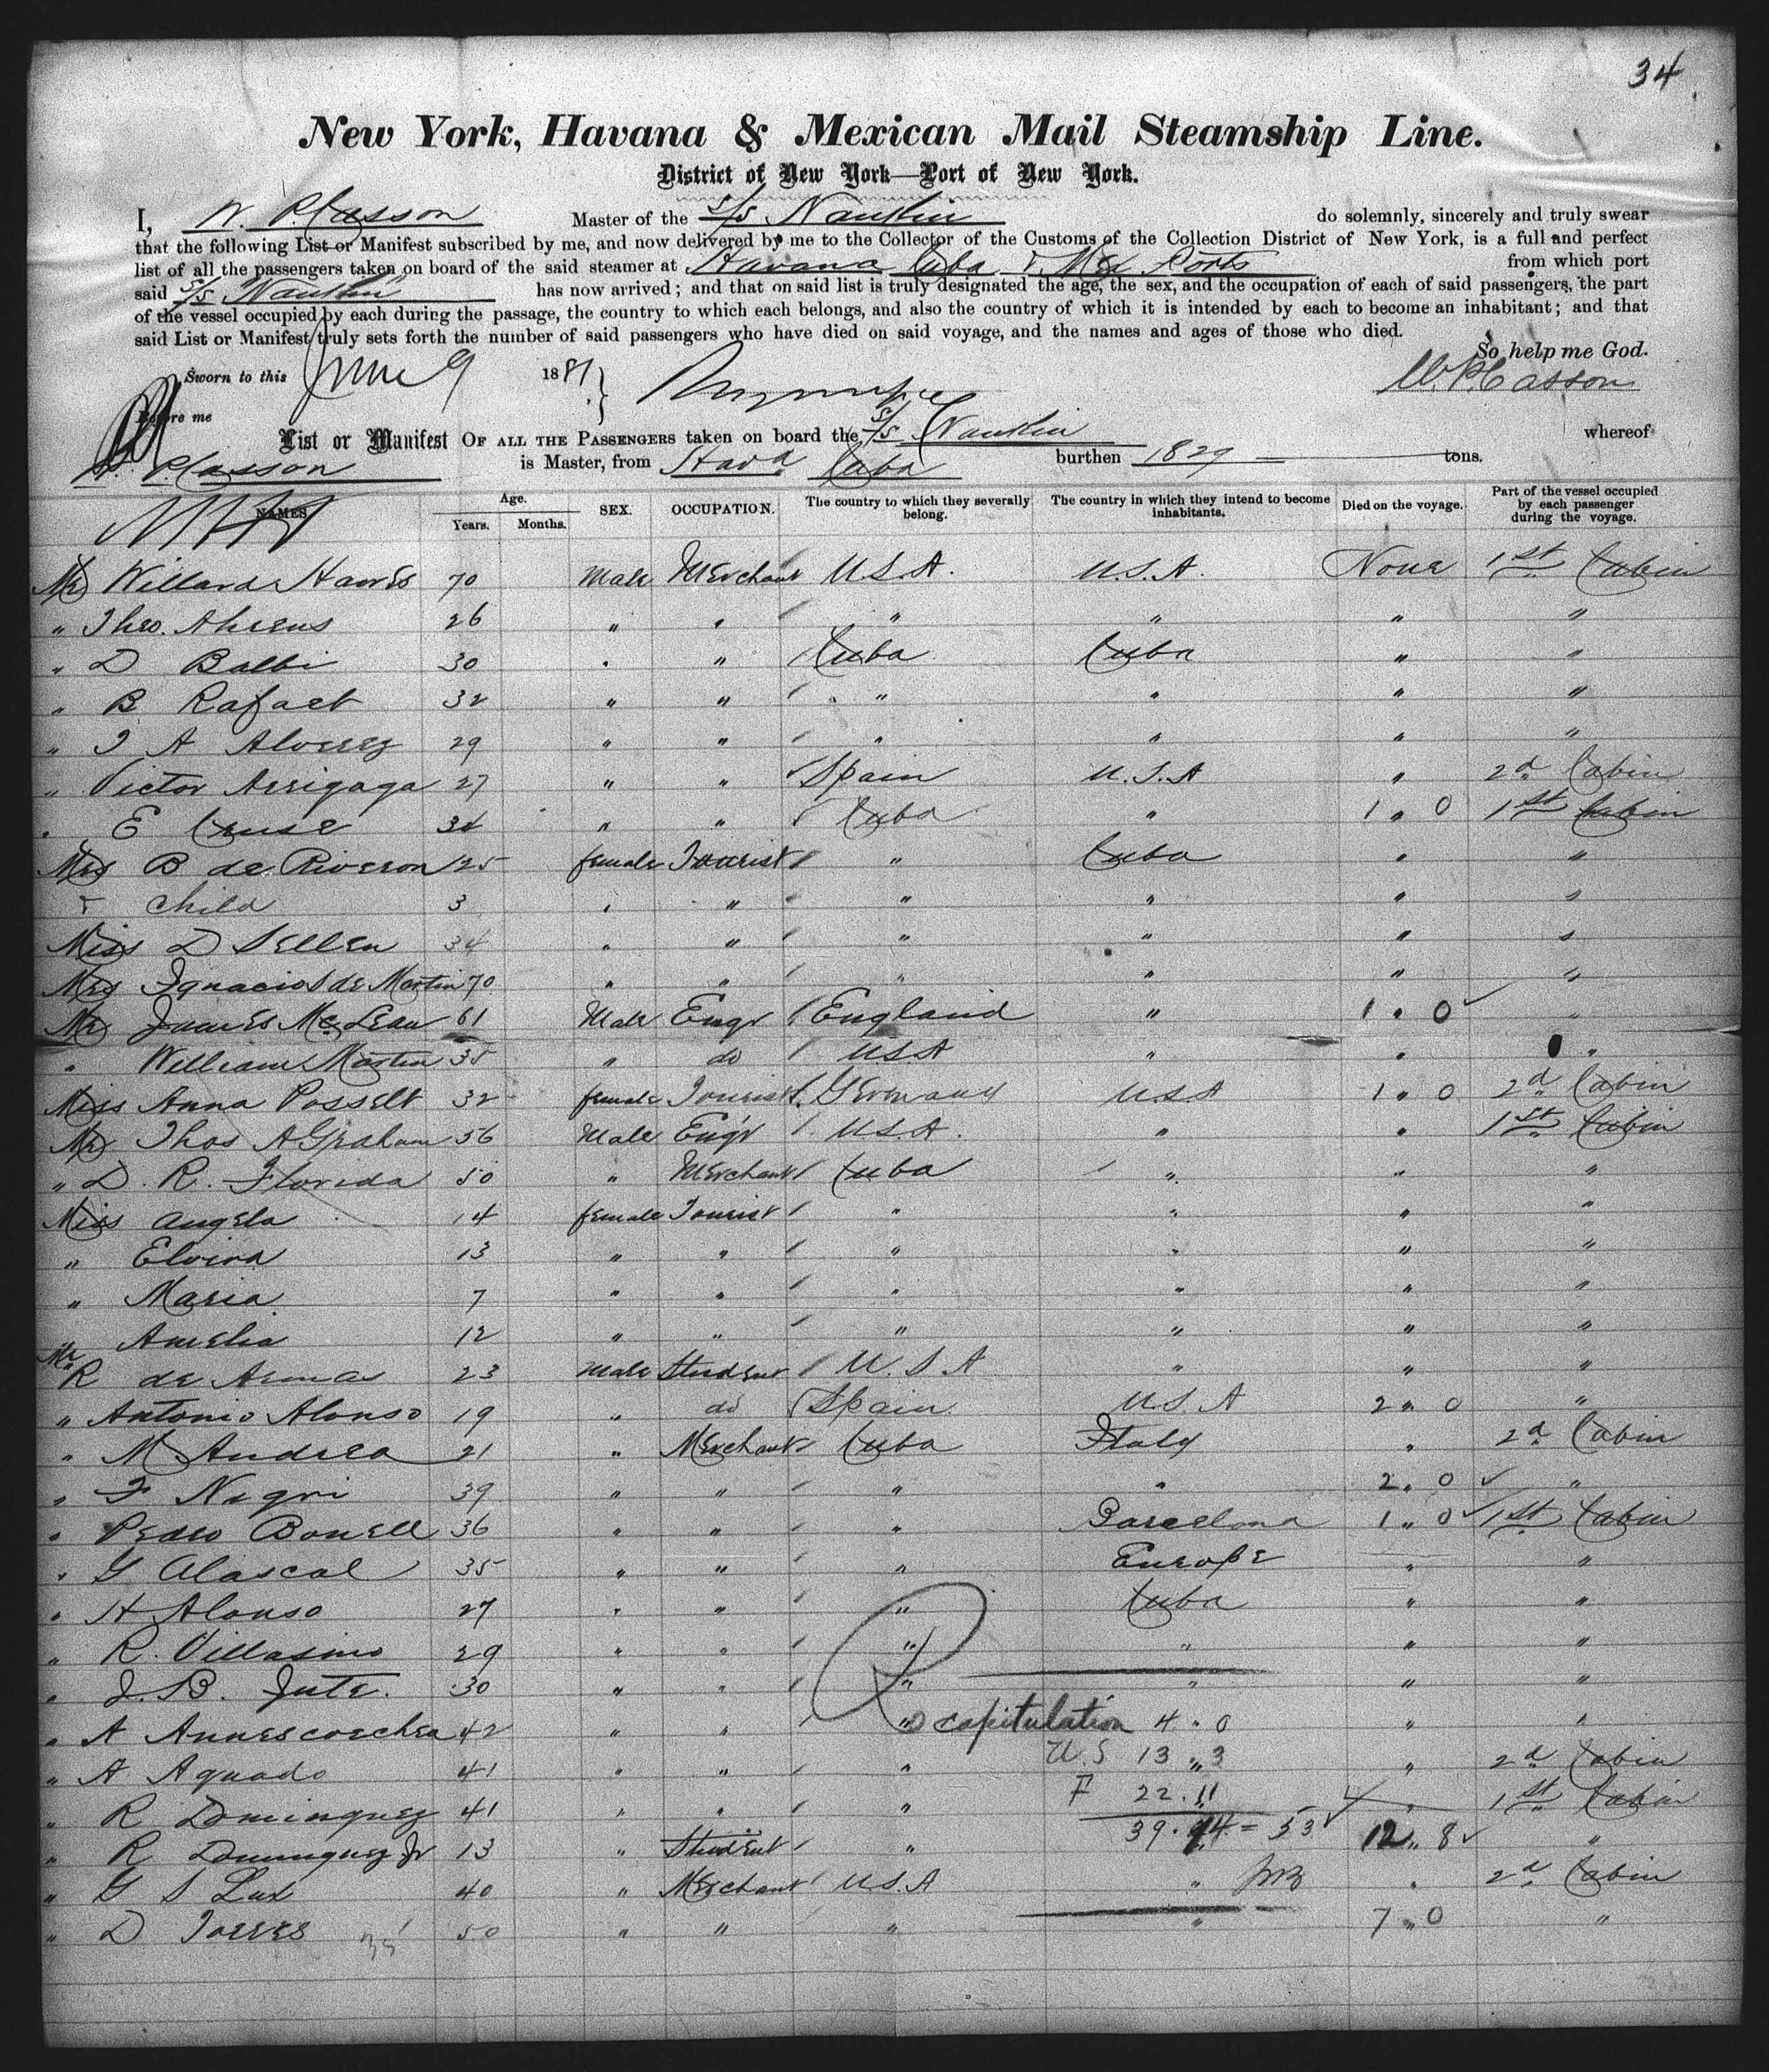 34
New York, Havana & Mexican Mail Steamship Line.
District of New York—Port of New York.
I, W. P. Casson Master of the S/S Nankin do solemnly, sincerely and truly swear
that the following List or Manifest subscribed by me, and now delivered by me to the Collector of the Customs of the Collection District of New York, is a full and perfect
list of all the passengers taken on board of the said steamer at Havana Cuba & Mex Ports from which port
said S/S Nankin has now arrived; and that on said list is truly designated the age, the sex, and the occupation of each of said passengers, the part
of the vessel occupied by each during the passage, the country to which each belongs, and also the country of which it is intended by each to become an inhabitant; and that
said List or Manifest truly sets forth the number of said passengers who have died on said voyage, and the names and ages of those who died.
So help me God.
Sworn to this June 9 1881 W. P. Casson
Before me
List or Manifest OF ALL THE PASSENGERS taken on board the S/S Nankin whereof
W. P. Casson is Master, from Hava Cuba burthen 1829 tons.
NAMES Age. Years. Months. SEX. OCCUPATION. The country to which they severally belong. The country in which they intend to become inhabitants. Died on the voyage. Part of the vessel occupied by each passenger during the voyage.
Mr Willard Hawes 70 Male Merchant U.S.A. U.S.A. None 1st Cabin
" Theo. Ahrens 26 " " " " " "
" D Balbi 30 " " Cuba Cuba " "
" B Rafael 32 " " " " " "
" J A Alverez 29 " " " " " "
" Victor Arrigaga 27 " " Spain U.S.A " 2d Cabin
" E Cruse 34 " " Cuba " 1 " 0 1st Cabin
Mrs B de Riveron 25 female Tourist " Cuba " "
& Child 3 " " " " " "
Miss D Sellen 34 " " " " " "
Mrs Ignacio S de Martin 70 " " " " " "
Mr James McLean 61 Male Engr England " 1 " 0 "
" William Martin 35 " do USA " " "
Miss Anna Posselt 32 female Tourist Germany U.S.A 1 " 0 2d Cabin
Mr Thos A Graham 56 Male Eng'r U.S.A. " " 1st Cabin
" D. R. Florida 50 " Merchant Cuba " " "
Miss Angela 14 female Tourist " " " "
" Elvira 13 " " " " " "
" Maria 7 " " " " " "
" Amelia 12 " " " " " "
Mr R de Armas 23 Male Student U.S.A " " "
" Antonio Alonso 19 " do Spain U.S.A 2 " 0 "
" M Andrea 21 " Merchant Cuba Italy " 2d Cabin
" F Negri 39 " " " " 2 " 0 "
" Pedro Bonell 36 " " " Barcelona 1 " 0 1st Cabin
" G Alascal 35 " " " Europe " "
" H Alonso 27 " " " Cuba " "
" R. Villasino 29 " " " " " "
" J. B. Jute. 30 " " " " " "
" A Annescoechea 42 " " " Recapitulation 4 " 0 " "
" A Aguado 41 " " " U.S 13 " 3 " 2d Cabin
" R Dominguez 41 " " " F 22 . 11 " 1st Cabin
" R Dominguez Jr 13 " Student " 39 . 14 = 53 12 " 8 "
" G S Lux 40 " Merchant U.S.A " " 2d Cabin
" D Torres 50 " " " " 7 " 0 "